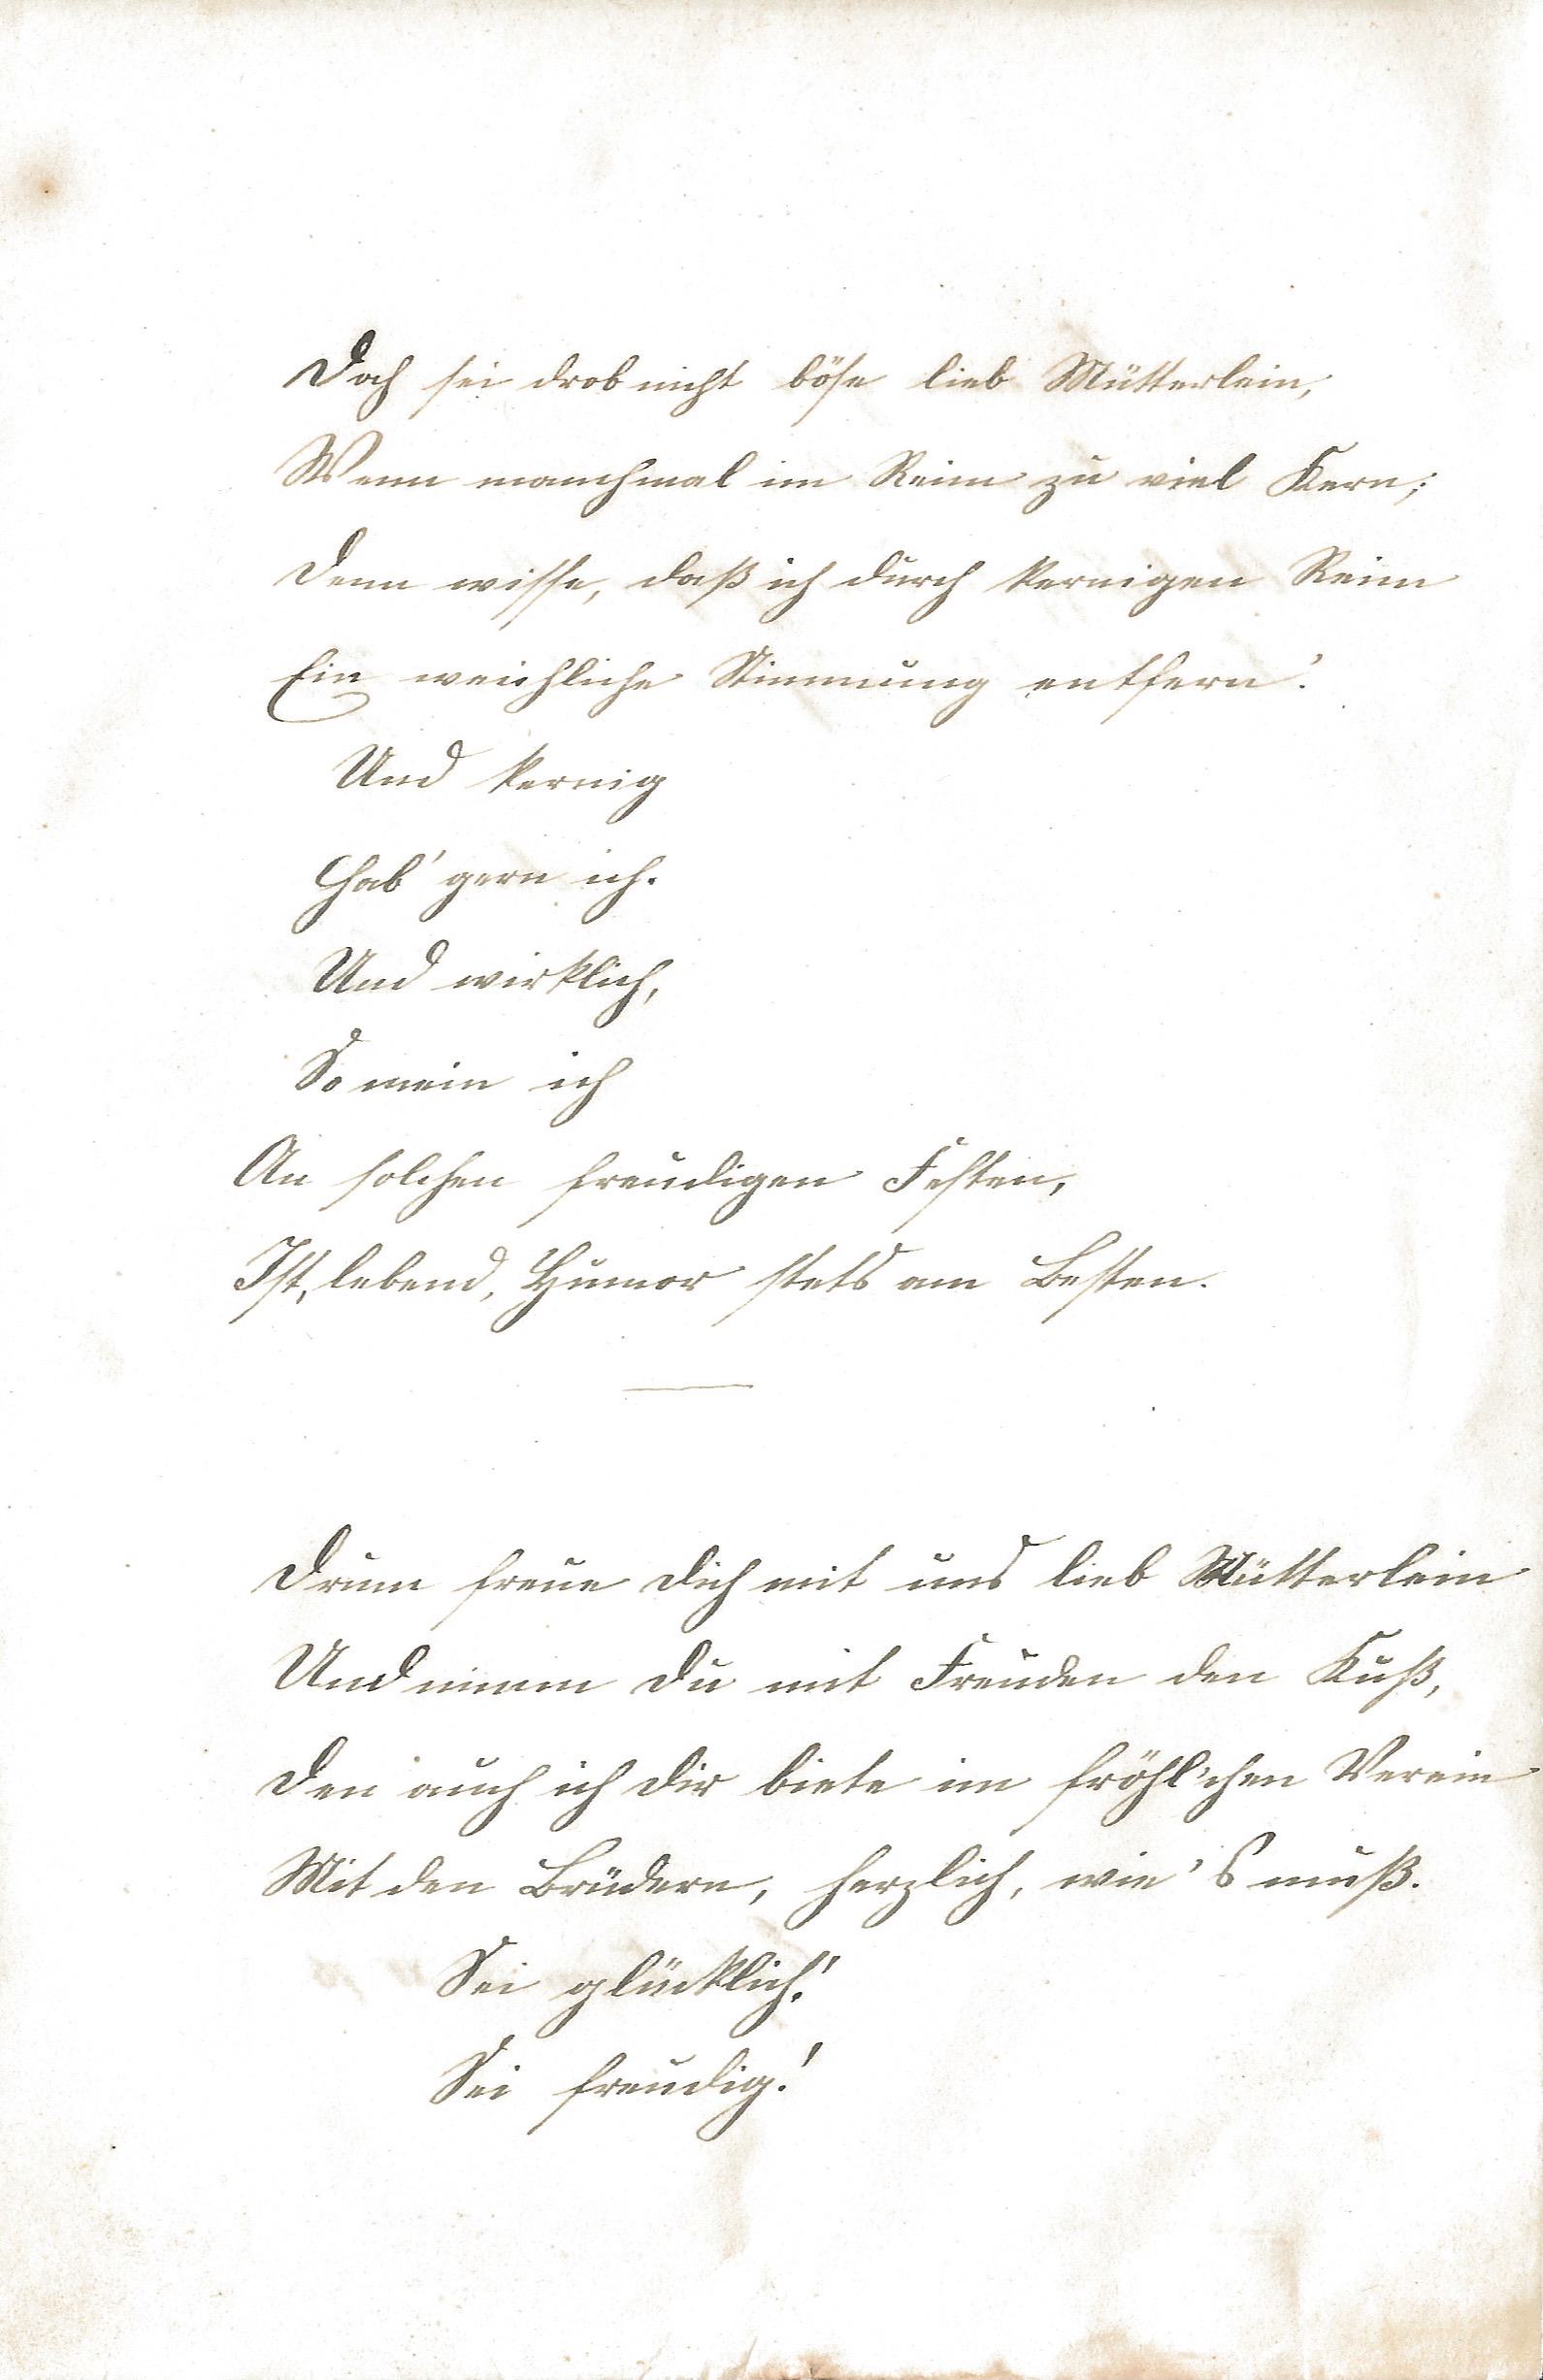 Doch sei drob nicht böse lieb Mütterlein,
Wenn manchmal im Reim zu viel Kern;
Denn wisse, daß ich durch kernigen Reim
Ein weichliche Stimmung entfern'.
Und kernig
Hab' gern ich.
Und wirklich,
So mein ich
An solchen freudigen Festen,
Ist, lebend, Humor stets am Besten.
Drum freue dich mit uns lieb Mütterlein
Und nimm du mit Freuden den Kuß,
Den auch ich dir biete im fröhl'chen Verein
Mit den Brüdern, herzlich, wie's muß.
Sei glücklich!
Sei freudig!